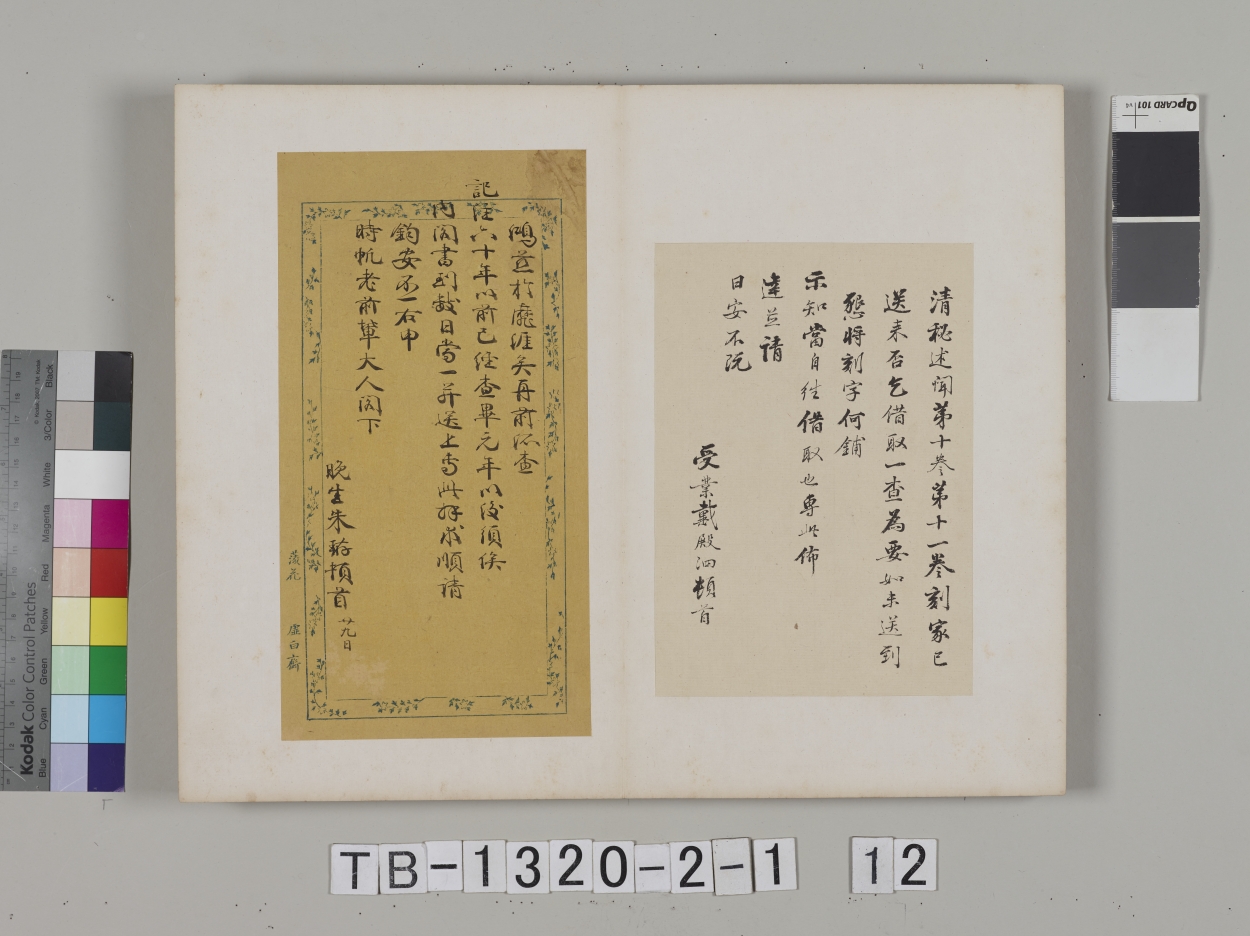 清秘述聞第十叄第十一叄刻家已
送来否乞借取一查為要如未送到
懇將刻字何鋪
示知當自往借取也專此佈
達並請
日安不阮
受業戴殿泗頓首
鴻並於
再前
記注六十年以前已經查畢元年以後須俟
內閣書到數日當一并送上專此拜求順請
鈞安不一右申
時帆老前輩大人閣下
晚生朱 頓首 廿九日
虛白齋
QPCARD 101 v4
Kodak Color Control Patches
Blue Cyan Green Yellow Red Magenta White 3/Color Black
TB-1320-2-1 12